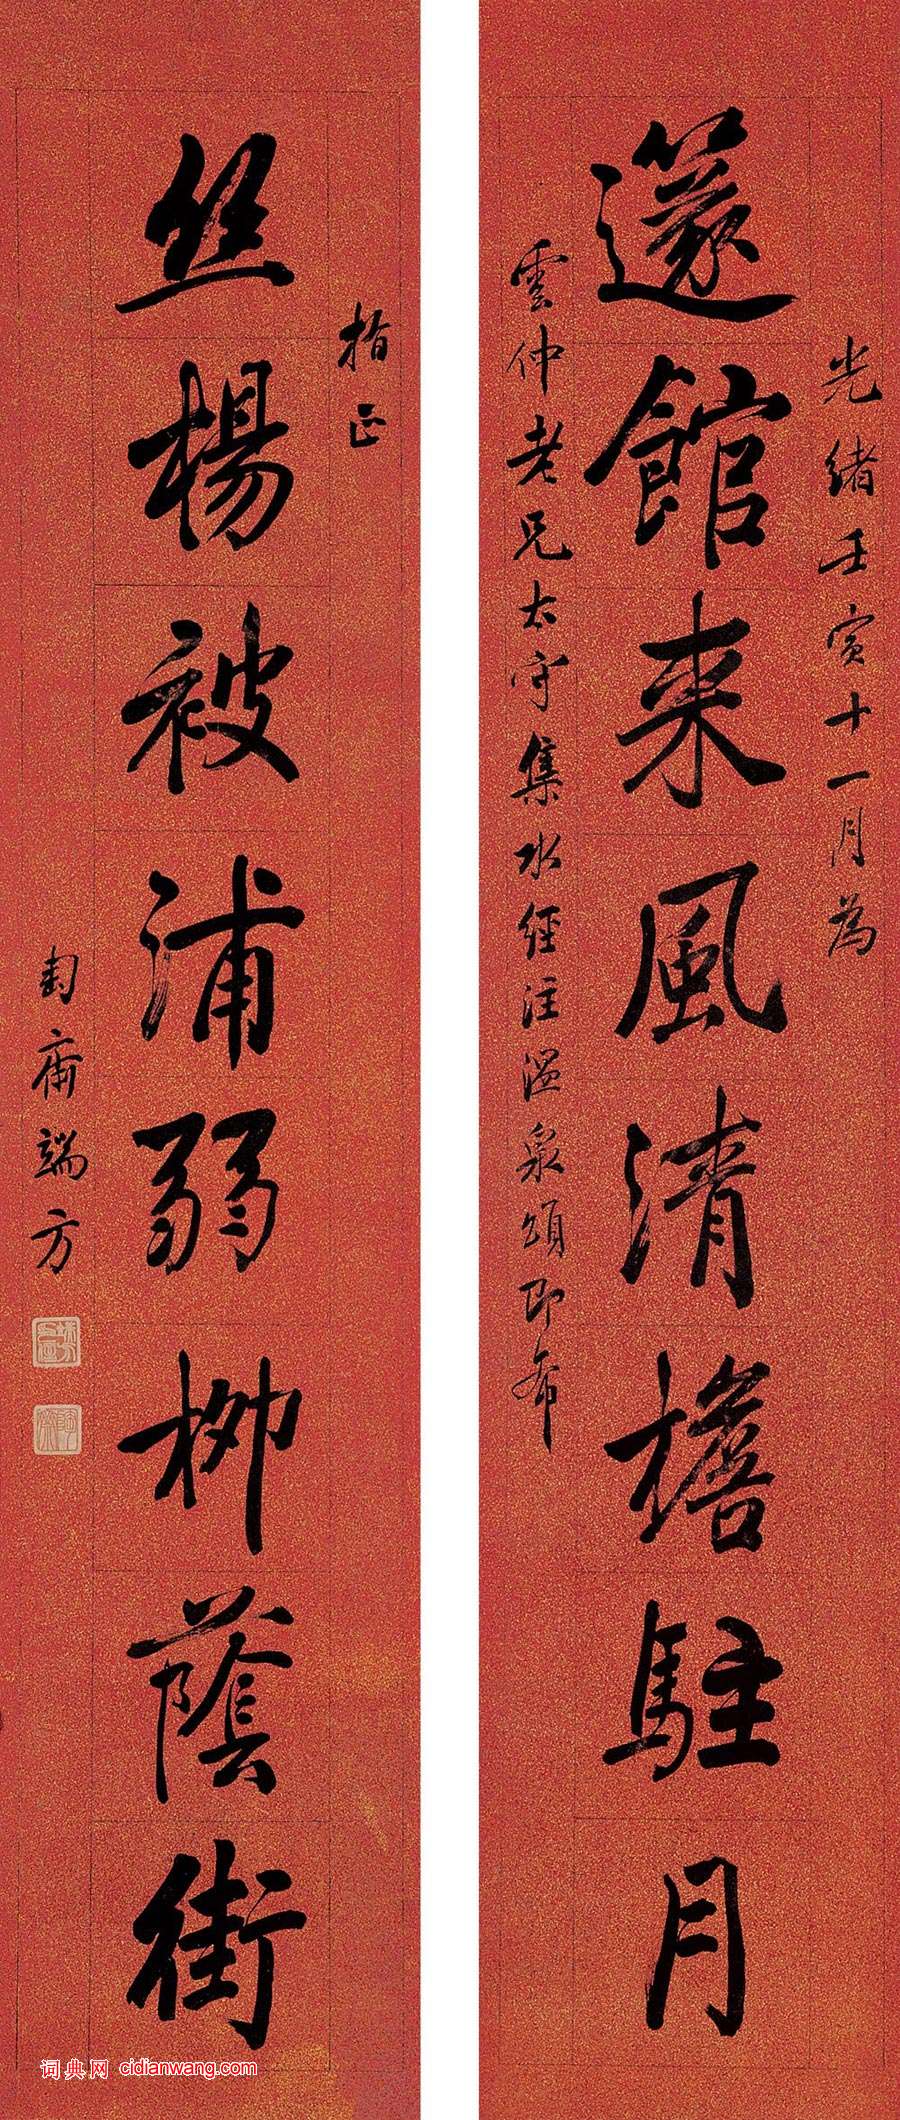 邃館来風清檐駐月
光緒壬寅十一月為
雲仲老兄太守集水經注溫泉頌即希
丝楊被浦弱柳蔭街
指正
匋齋端方
词典网 cidianwang.com